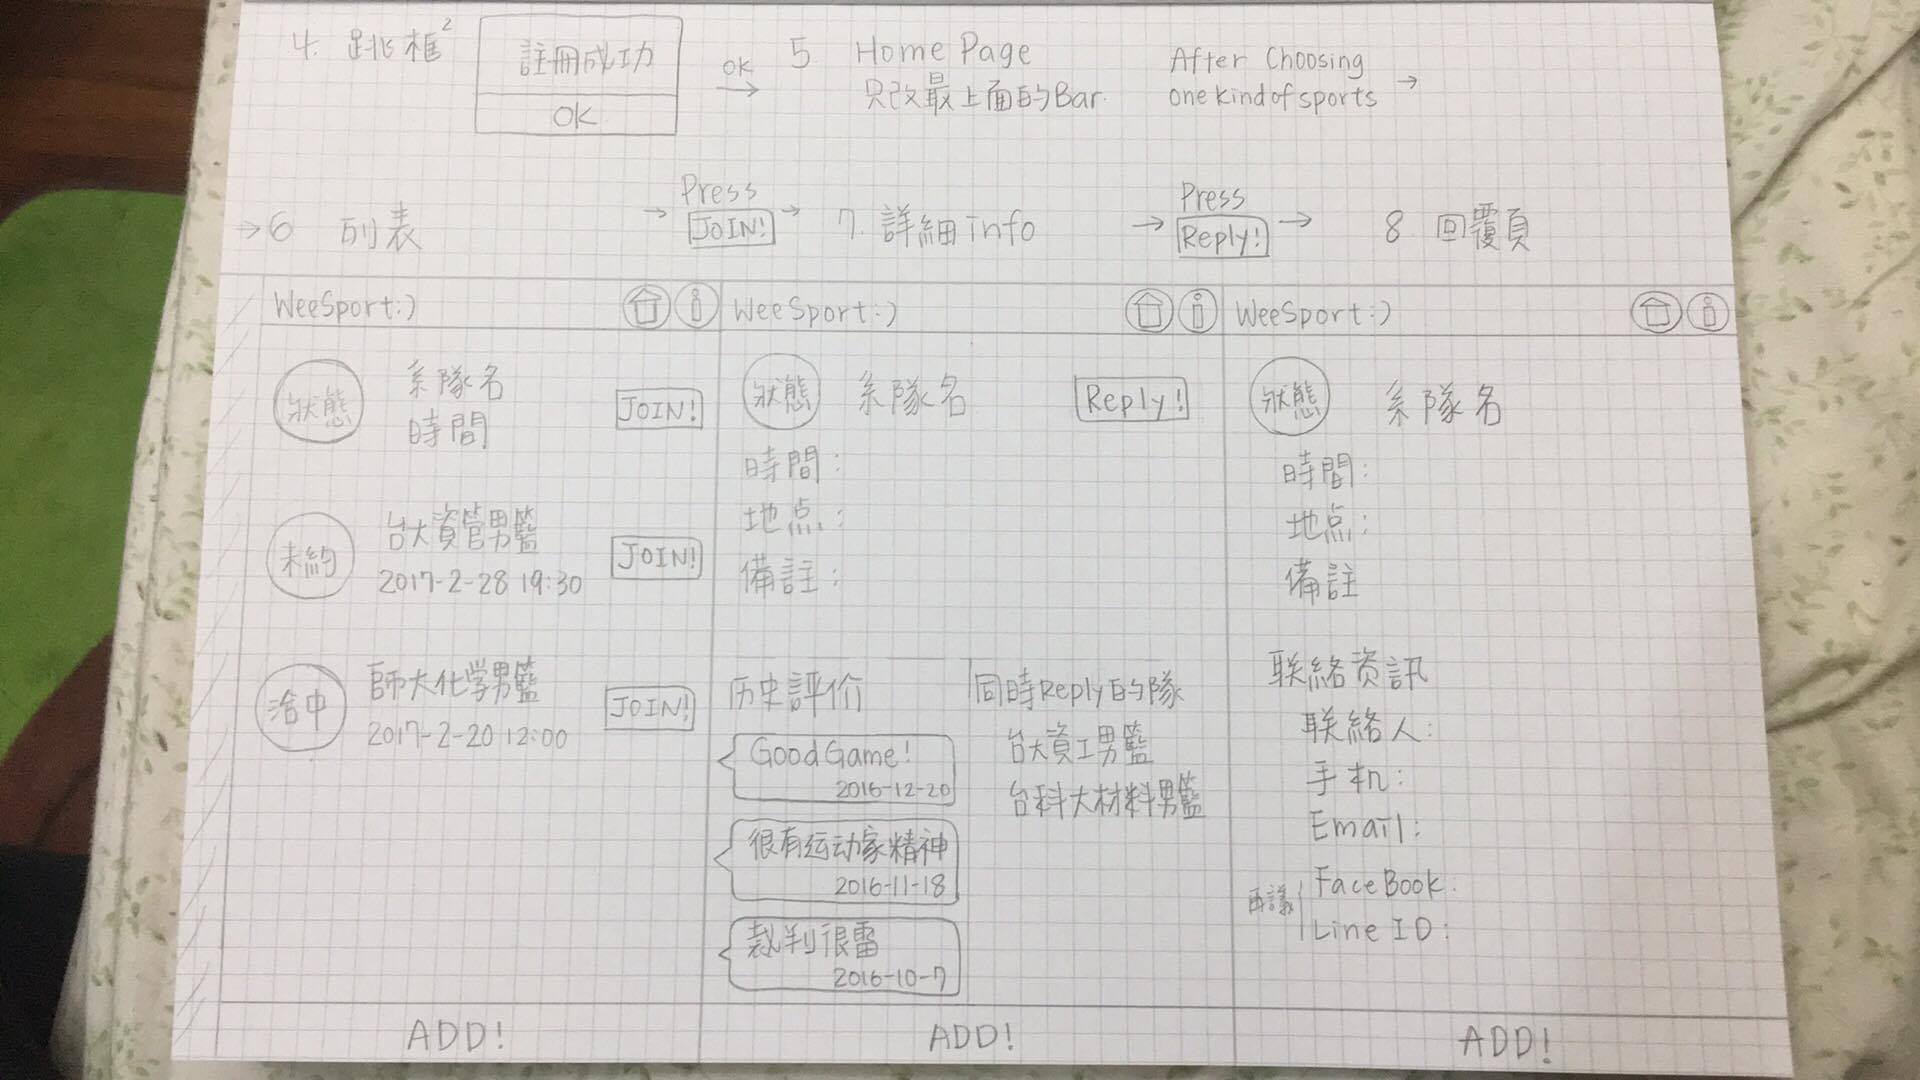 4. 跳框²
註冊成功
OK
OK →
5 Home Page
只改最上面的Bar.
After Choosing
one kind of sports →
→ 6 列表
→ Press
JOIN! →
7. 詳細info
→ Press
Reply! →
8 回覆頁
WeeSport:)
狀態
系隊名
時間
JOIN!
未約
台大資管男籃
2017-2-28 19:30
JOIN!
洽中
師大化学男籃
2017-2-20 12:00
JOIN!
ADD!
WeeSport:)
狀態
系隊名
Reply!
時間:
地点:
備註:
历史評价
Good Game!
2016-12-20
很有运动家精神
2016-11-18
裁判很雷
2016-10-7
同時Reply的隊
台大資工男籃
台科大材料男籃
ADD!
WeeSport:)
狀態
系隊名
時間:
地点:
備註
联絡資訊
联絡人:
手机:
Email:
再議
FaceBook:
Line ID:
ADD!